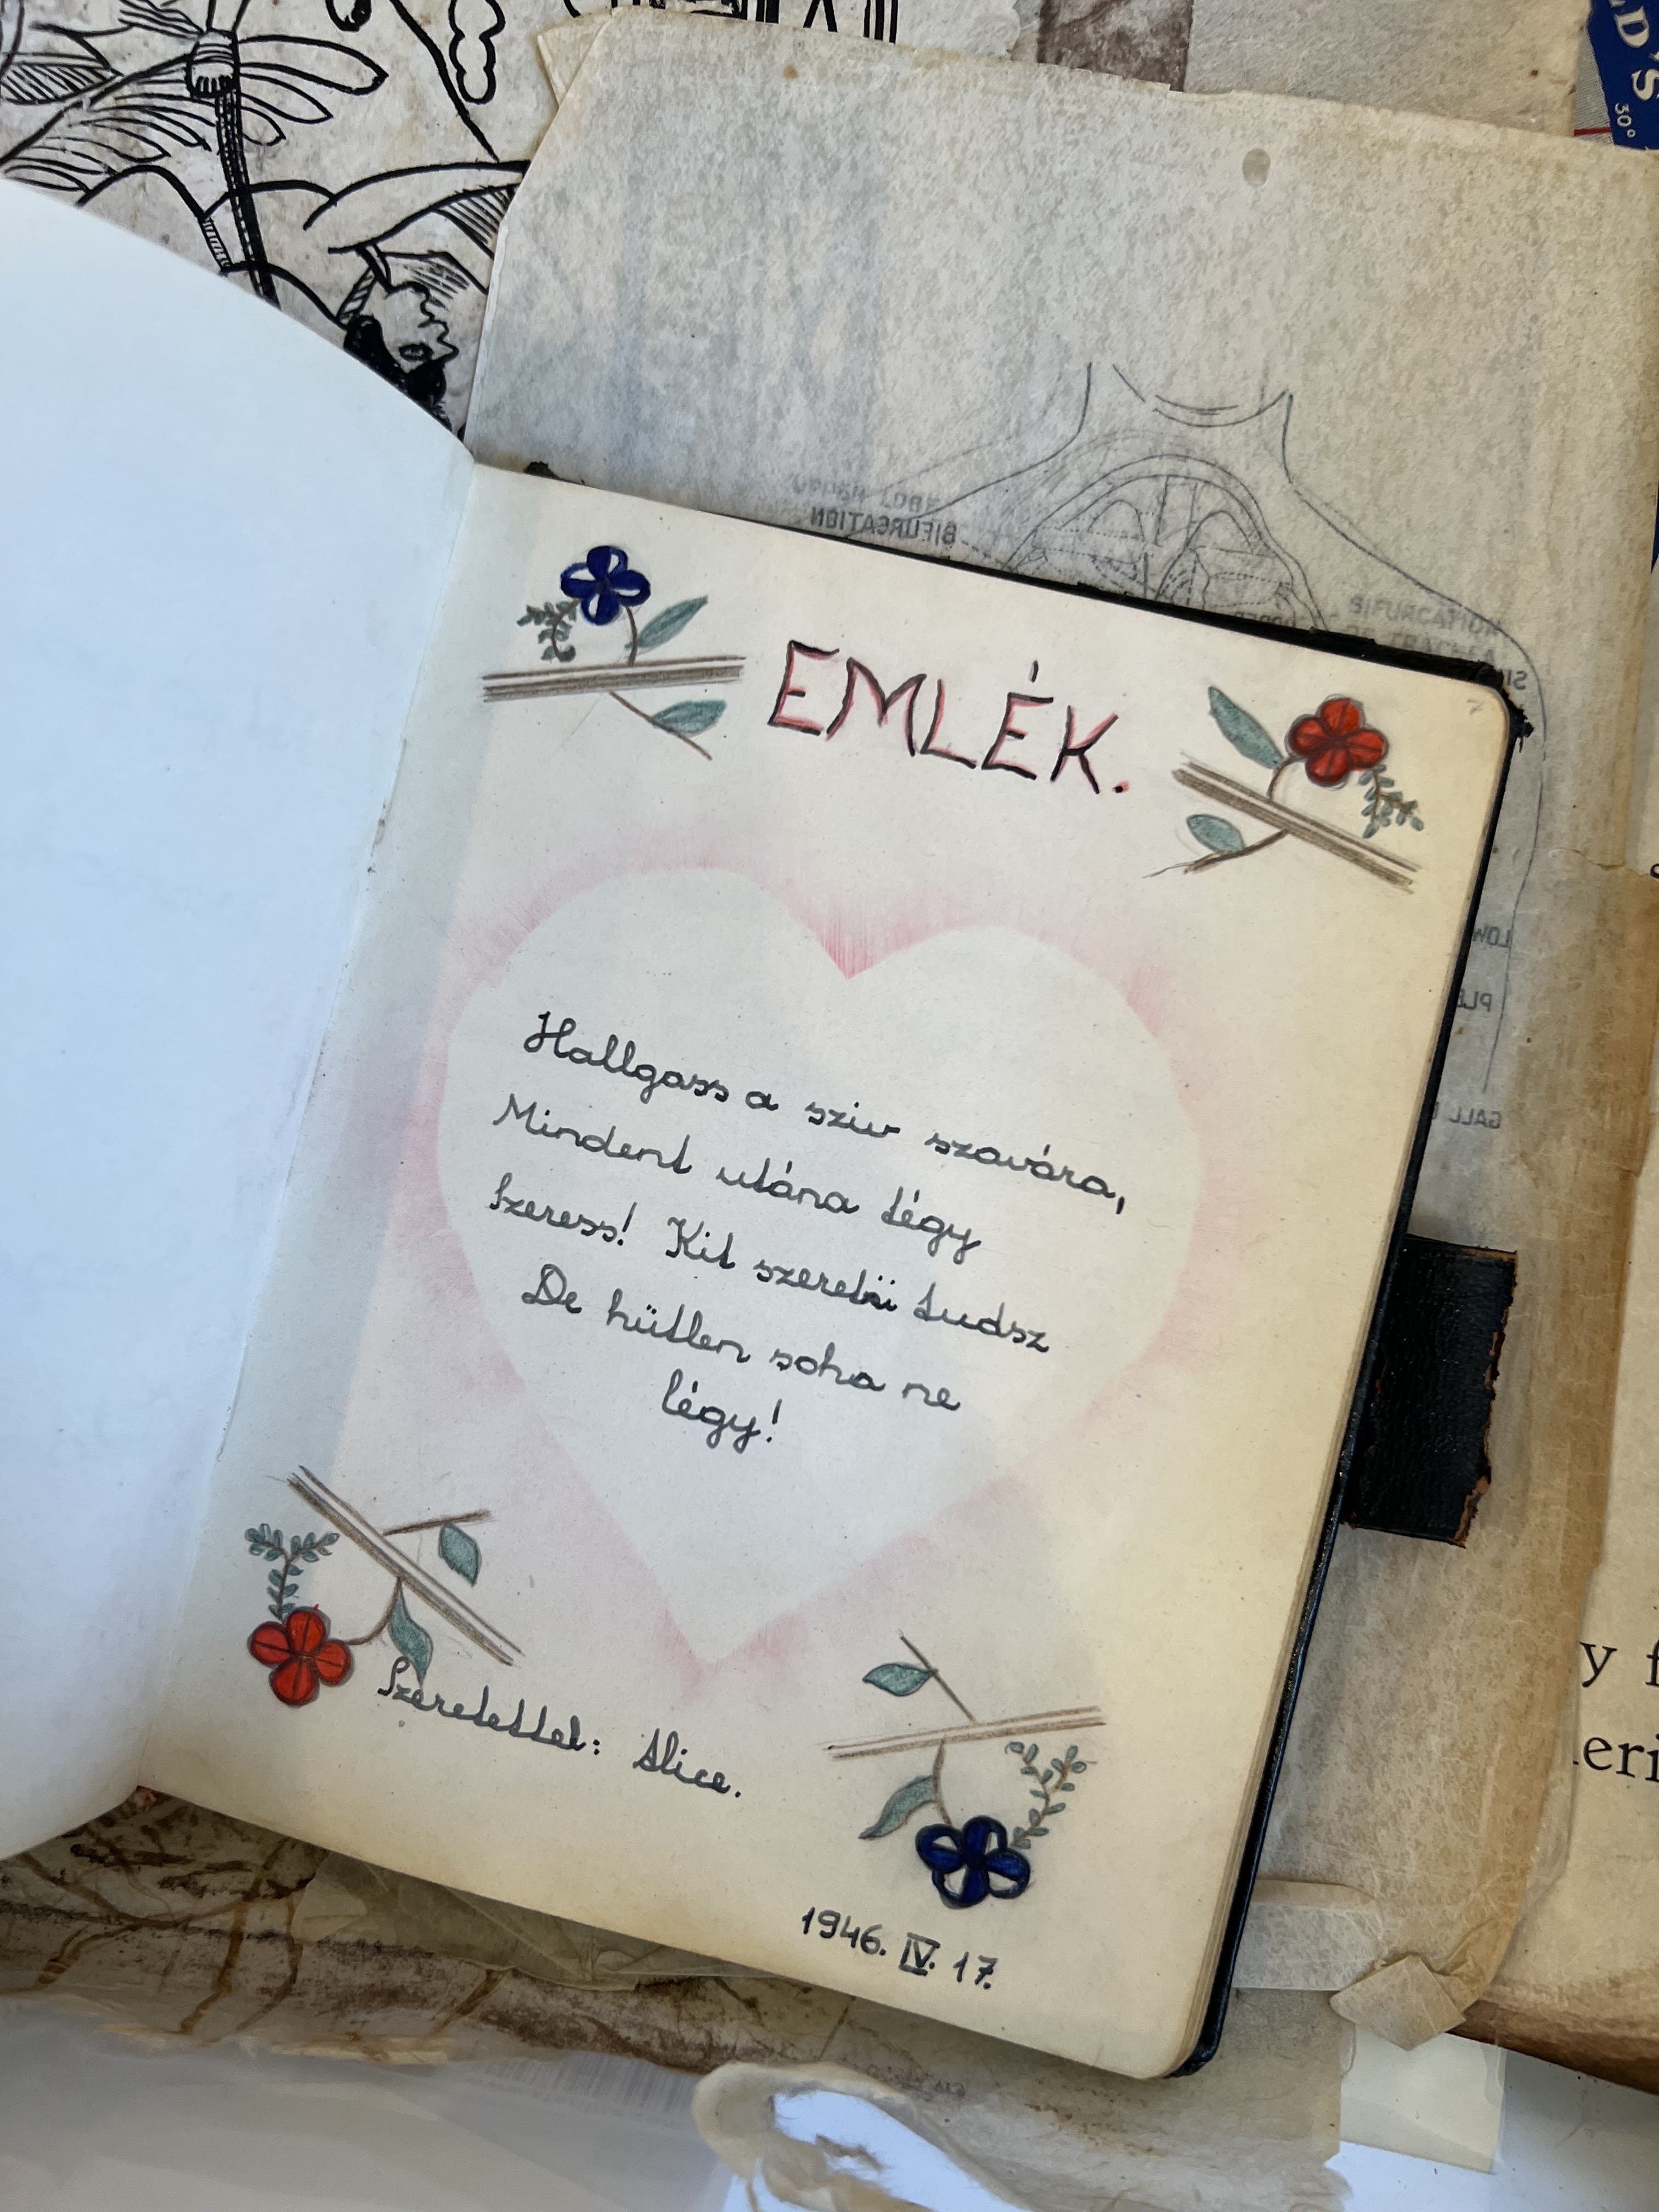 EMLÉK.
Hallgass a sziv szavára,
Mindent utána tégy
Szeress! Kit szeretni tudsz
De hütlen soha ne
légy!
Szeretettel: Alice.
1946. IV. 17.
BIFURCATION
BIFURCATION
LOW
PLE
GALL
D'S
30°
y f
eri